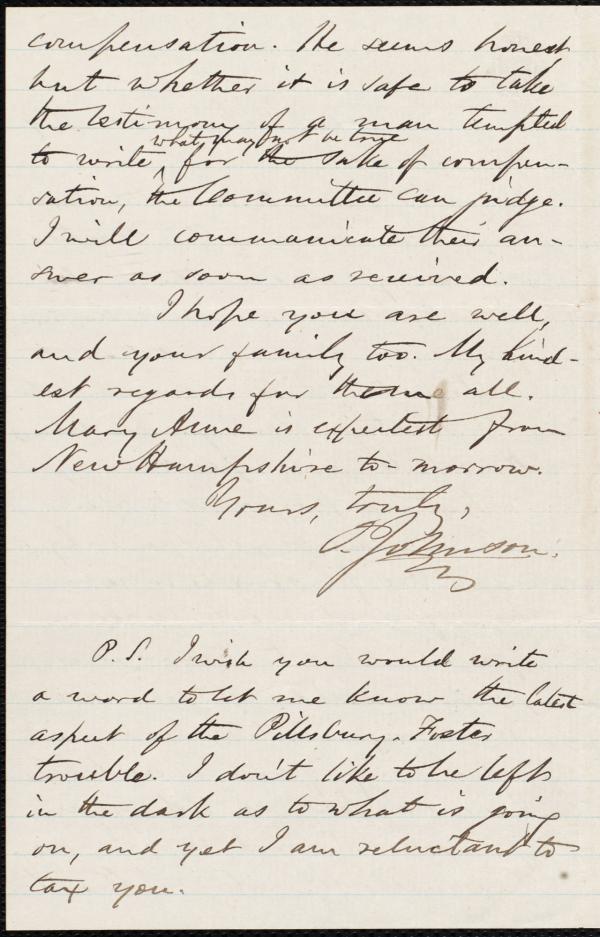 compensation. He seems honest
but whether it is safe to take
the testimony of a man tempted
what may not be true
to write, for the sake of compen-
sation, the Committee can judge.
I will communicate their an-
swer as soon as received.
I hope you are well,
and your family too. My kind-
est regards for them all.
Mary Anne is expected from
New Hampshire to-morrow.
Yours, truly,
O. Johnson.
P.S. I wish you would write
a word to let me know the latest
aspect of the Pillsbury-Foster
trouble. I don't like to be left
in the dark as to what is going
on, and yet I am reluctant to
tax you.